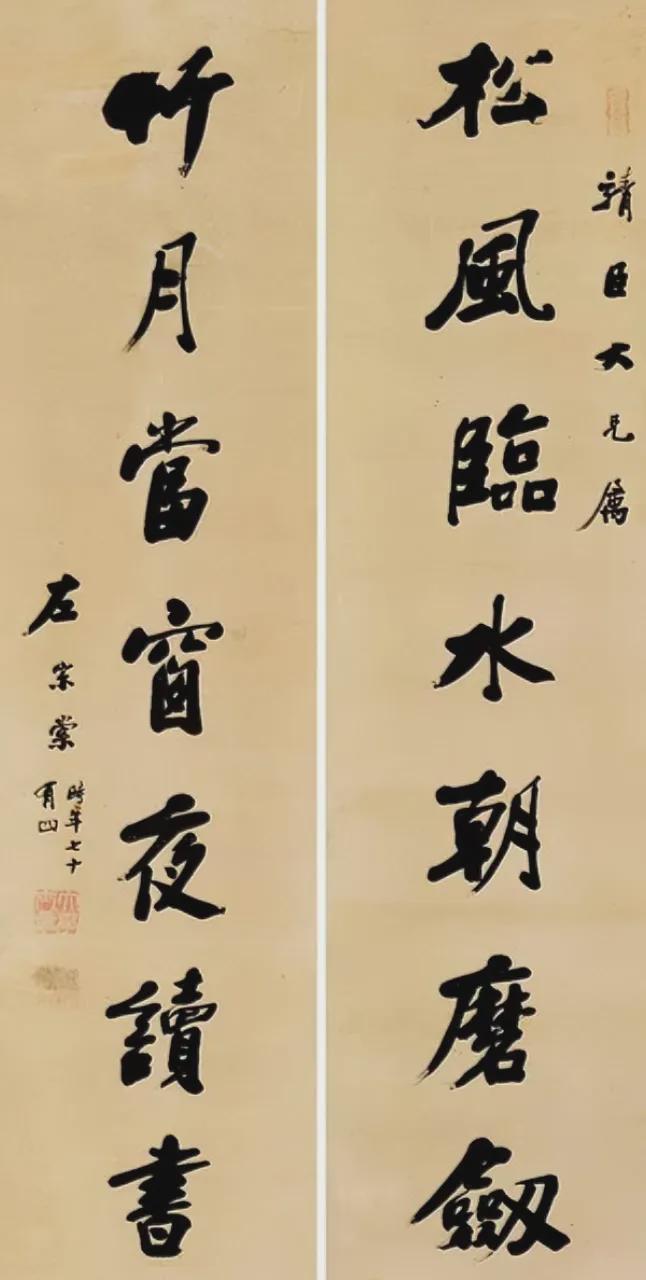 靖臣大兄属
松風臨水朝磨劔
竹月當窗夜讀書
左宗棠
時年七十
有四